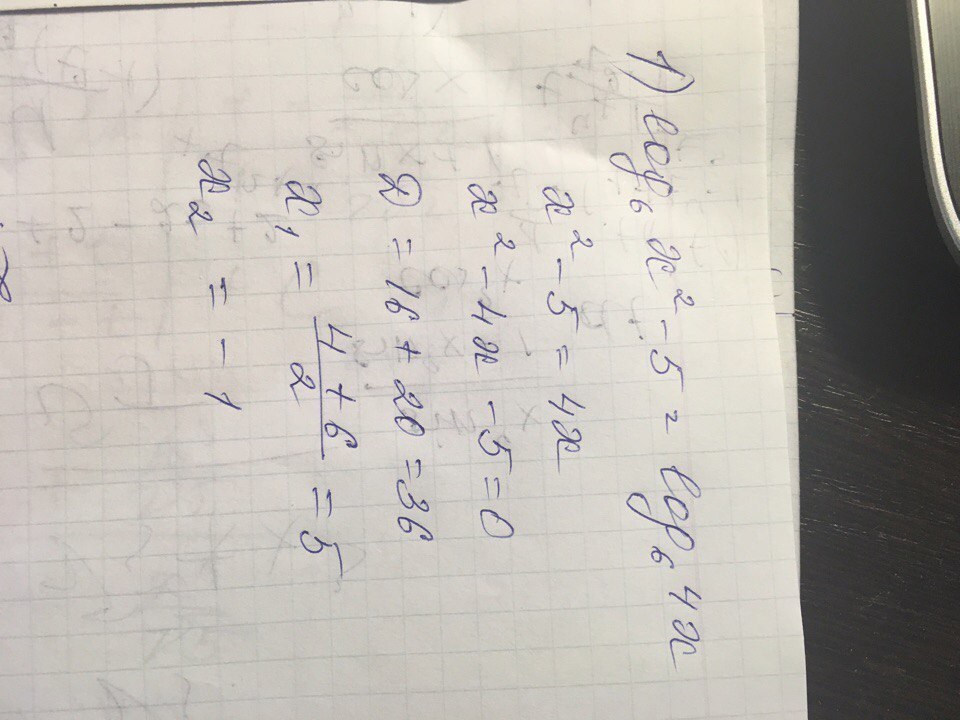 1) log₆ x² - 5 = log₆ 4x
x² - 5 = 4x
x² - 4x - 5 = 0
D = 16 + 20 = 36
x₁ = (4 + 6)/2 = 5
x₂ = - 1